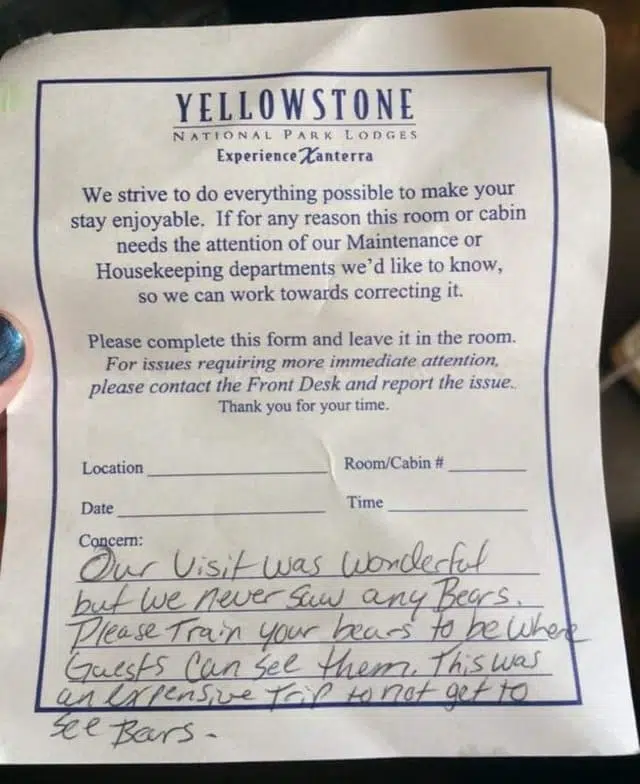 YELLOWSTONE
NATIONAL PARK LODGES
Experience Xanterra
We strive to do everything possible to make your
stay enjoyable. If for any reason this room or cabin
needs the attention of our Maintenance or
Housekeeping departments we'd like to know,
so we can work towards correcting it.
Please complete this form and leave it in the room.
For issues requiring more immediate attention,
please contact the Front Desk and report the issue.
Thank you for your time.
Location Room/Cabin #
Date Time
Concern:
Our Visit was wonderful
but we never saw any Bears.
Please Train your bears to be where
Guests can see them. This was
an expensive trip to not get to
See Bears.